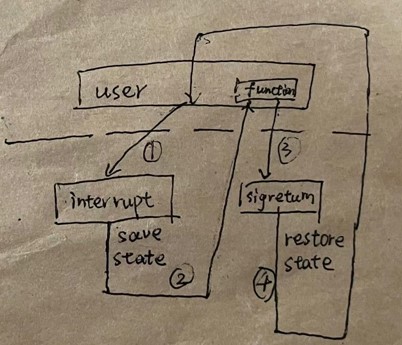 user
function
①
③
interrupt
sigreturn
save
state
②
④
restore
state